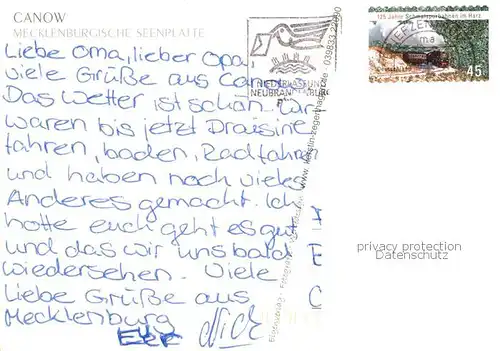 CANOW
MECKLENBURGISCHE SEENPLATTE
Liebe Oma, lieber Opa
viele Grüße aus Canow
Das Wetter ist schön. Wir
waren bis jetzt Draisine
fahren, baden, Radfahren
und haben noch vieles
Anderes gemacht. Ich
hoffe euch geht es gut
und das wir uns bald
wiedersehen. Viele
Liebe Grüße aus
Mecklenburg
NIEDERLASSUNG
NEUBRANDENBURG
125 Jahre Schmalspurbahnen im Harz
45
privacy protection
Datenschutz